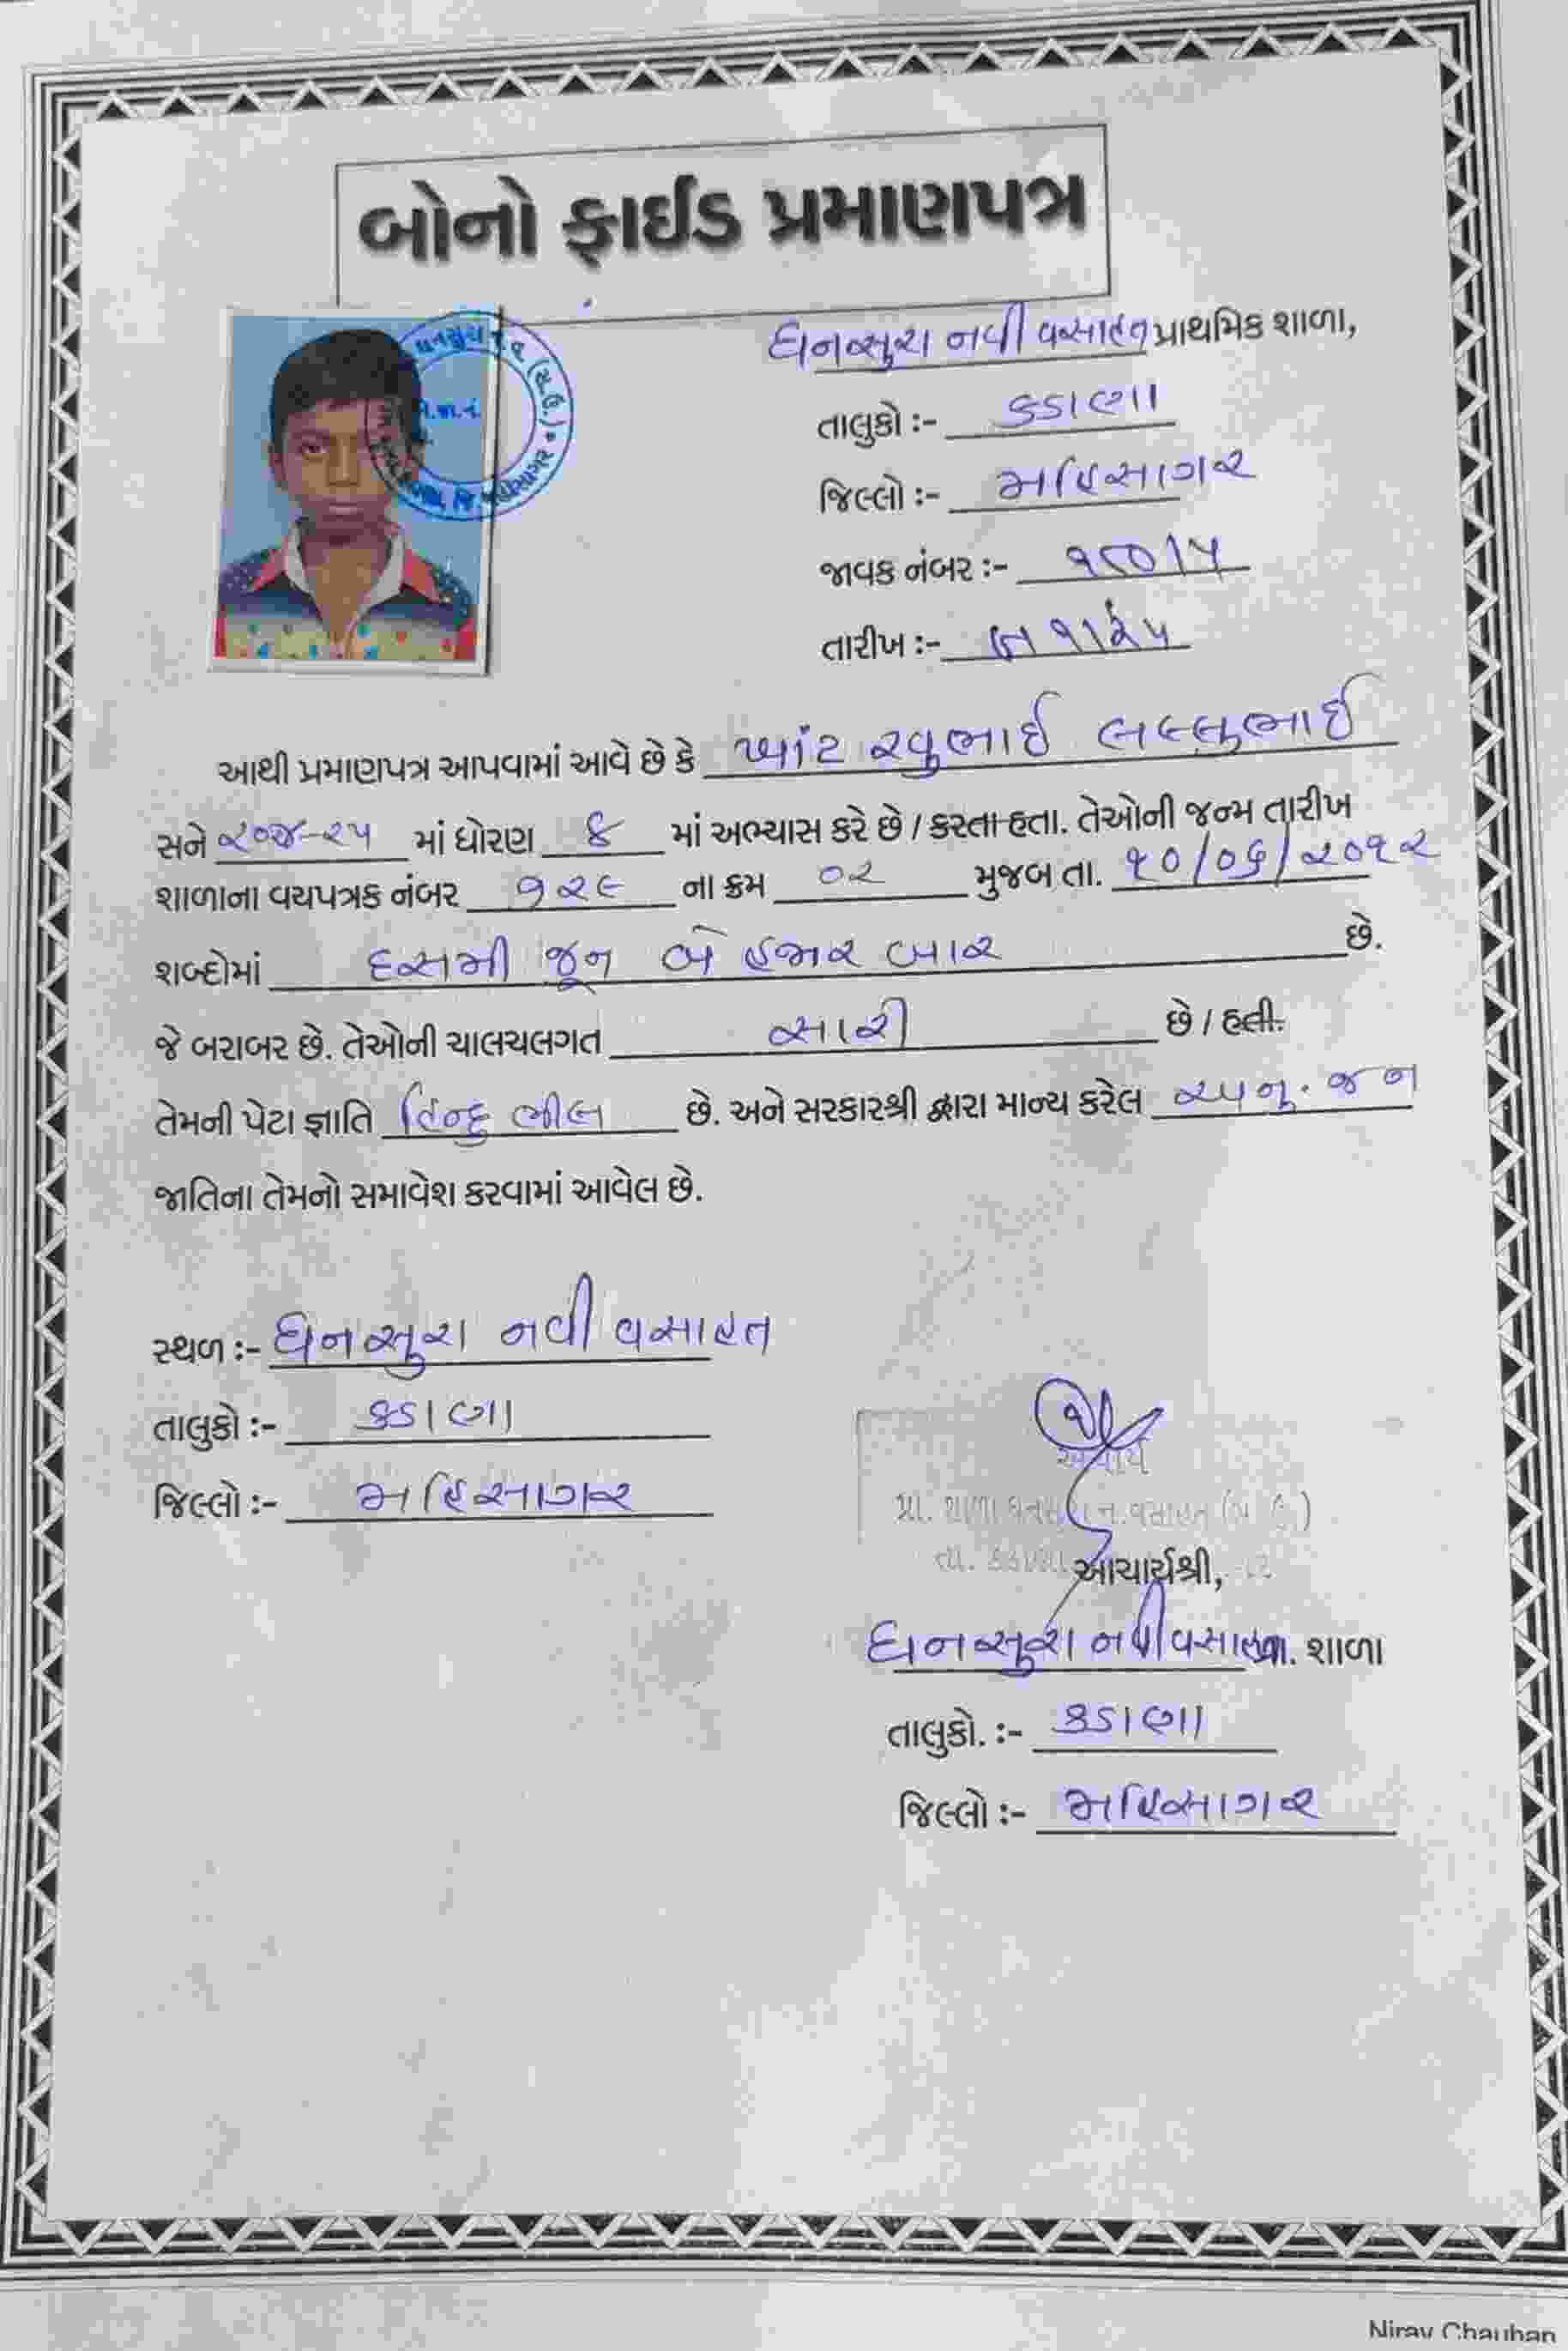 બોનો ફાઈડ પ્રમાણપત્ર
ધનસુરા નવી વસાહત પ્રાથમિક શાળા,
તાલુકો :- કડાણા
જિલ્લો :- મહિસાગર
જાવક નંબર :-
તારીખ :-
આથી પ્રમાણપત્ર આપવામાં આવે છે કે ખાંટ રવુભાઈ લલ્લુભાઈ
સને ૨૦૨૪-૨૫ માં ધોરણ માં અભ્યાસ કરે છે / કરતા હતા. તેઓની જન્મ તારીખ
શાળાના વયપત્રક નંબર ૧૨૯ ના ક્રમ ૦૨ મુજબ તા. ૧૦/૦૬/૨૦૧૨
શબ્દોમાં દસમી જૂન બે હજાર બાર છે.
જે બરાબર છે. તેઓની ચાલચલગત સારી છે / હતી.
તેમની પેટા જ્ઞાતિ હિન્દુ ભીલ છે. અને સરકારશ્રી દ્વારા માન્ય કરેલ અનુ. જન
જાતિના તેમનો સમાવેશ કરવામાં આવેલ છે.
સ્થળ :- ધનસુરા નવી વસાહત
તાલુકો :- કડાણા
જિલ્લો :- મહિસાગર
આચાર્ય
પ્રા. શાળા ધનસુરા ન.વસાહત
તા. કડાણા
આચાર્યશ્રી,
ધનસુરા નવી વસાહત પ્રા. શાળા
તાલુકો. :- કડાણા
જિલ્લો :- મહિસાગર
Nirav Chauhan